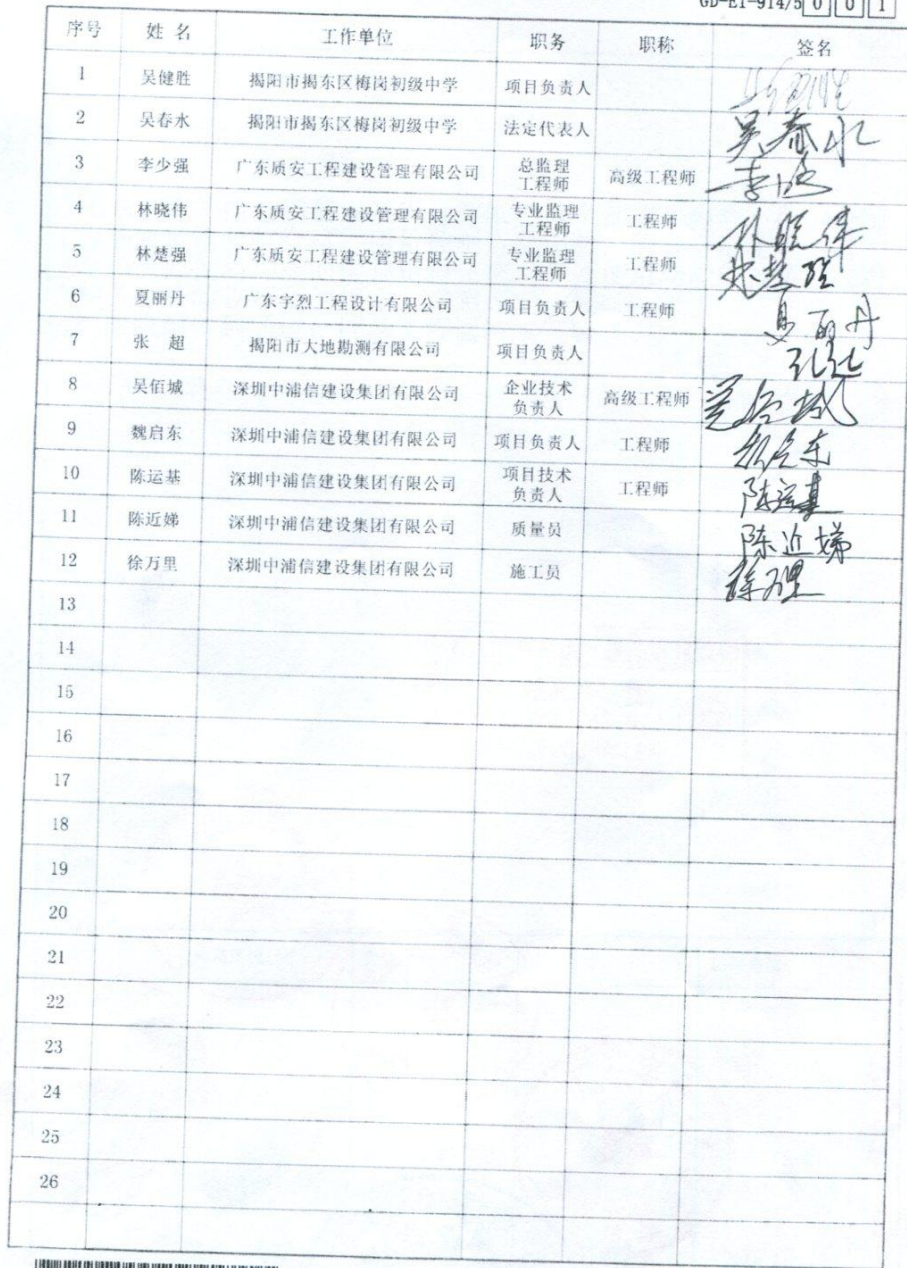 GD-E1-914/5 0 0 1
序号 姓 名 工作单位 职务 职称 签名
1 吴健胜 揭阳市揭东区梅岗初级中学 项目负责人
2 吴春水 揭阳市揭东区梅岗初级中学 法定代表人 吴春水
3 李少强 广东质安工程建设管理有限公司 总监理
工程师 高级工程师
4 林晓伟 广东质安工程建设管理有限公司 专业监理
工程师 工程师 林晓伟
5 林楚强 广东质安工程建设管理有限公司 专业监理
工程师 工程师 林楚强
6 夏丽丹 广东宇烈工程设计有限公司 项目负责人 工程师 夏丽丹
7 张 超 揭阳市大地勘测有限公司 项目负责人 张超
8 吴佰城 深圳中浦信建设集团有限公司 企业技术
负责人 高级工程师
9 魏启东 深圳中浦信建设集团有限公司 项目负责人 工程师
10 陈运基 深圳中浦信建设集团有限公司 项目技术
负责人 工程师 陈运基
11 陈近娣 深圳中浦信建设集团有限公司 质量员 陈近娣
12 徐万里 深圳中浦信建设集团有限公司 施工员 徐万里
13
14
15
16
17
18
19
20
21
22
23
24
25
26